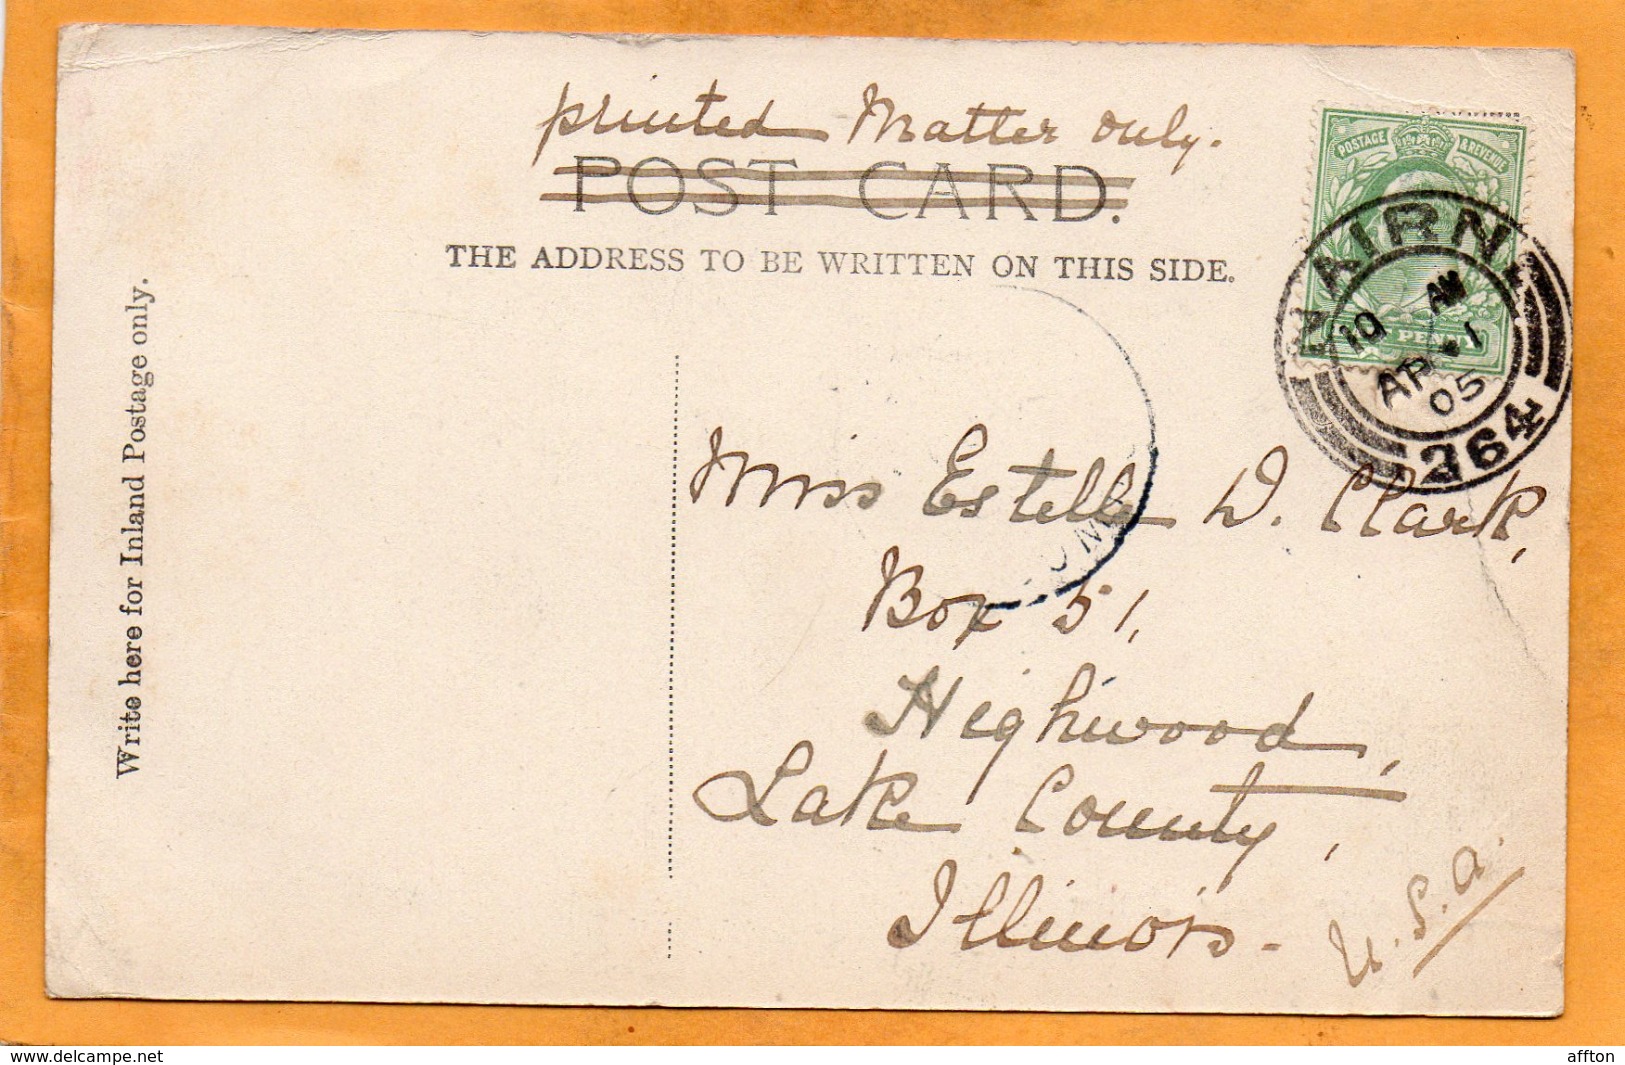 printed Matter only.
POST CARD.
THE ADDRESS TO BE WRITTEN ON THIS SIDE.
Write here for Inland Postage only.
POSTAGE & REVENUE
PENNY
NAIRN
10 AM
AP 1
05
264
Miss Estelle D. Clark,
Box 51,
Highwood,
Lake County,
Illinois.
U.S.A.
delcampe.net
affton